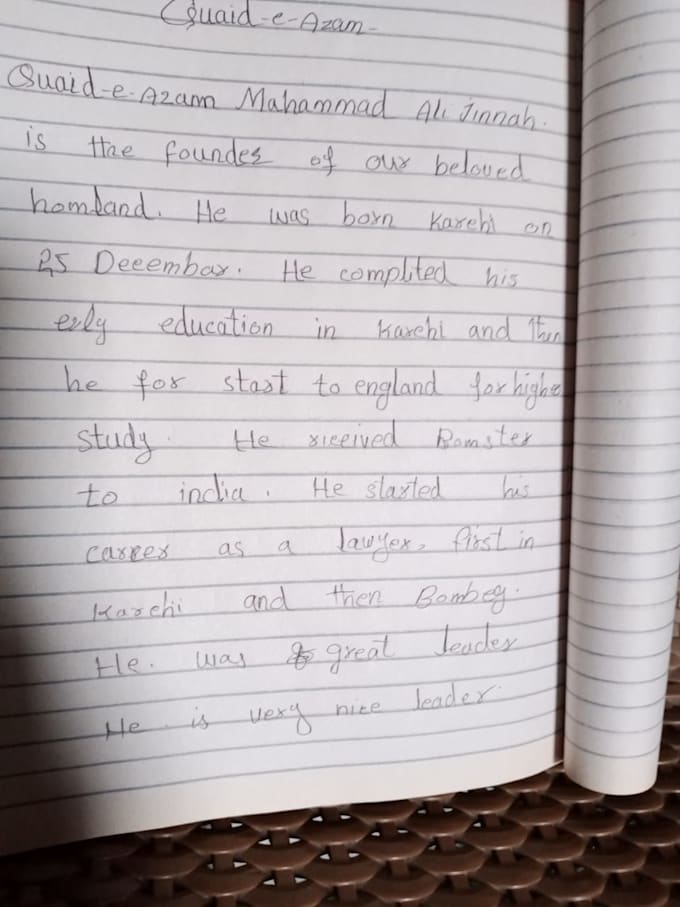 Quaid-e-Azam-
Quaid-e-Azam Mahammad Ali Jinnah.
is thae foundes of our beloved
homland. He was born Karchi on
25 Deeembar. He complited his
erly education in Karchi and then
he for start to england for highe
study. He riceived Romster
to india. He started his
career as a lawyer, first in
Karchi and then Bombey.
He. was great leader
He is very nice leader.